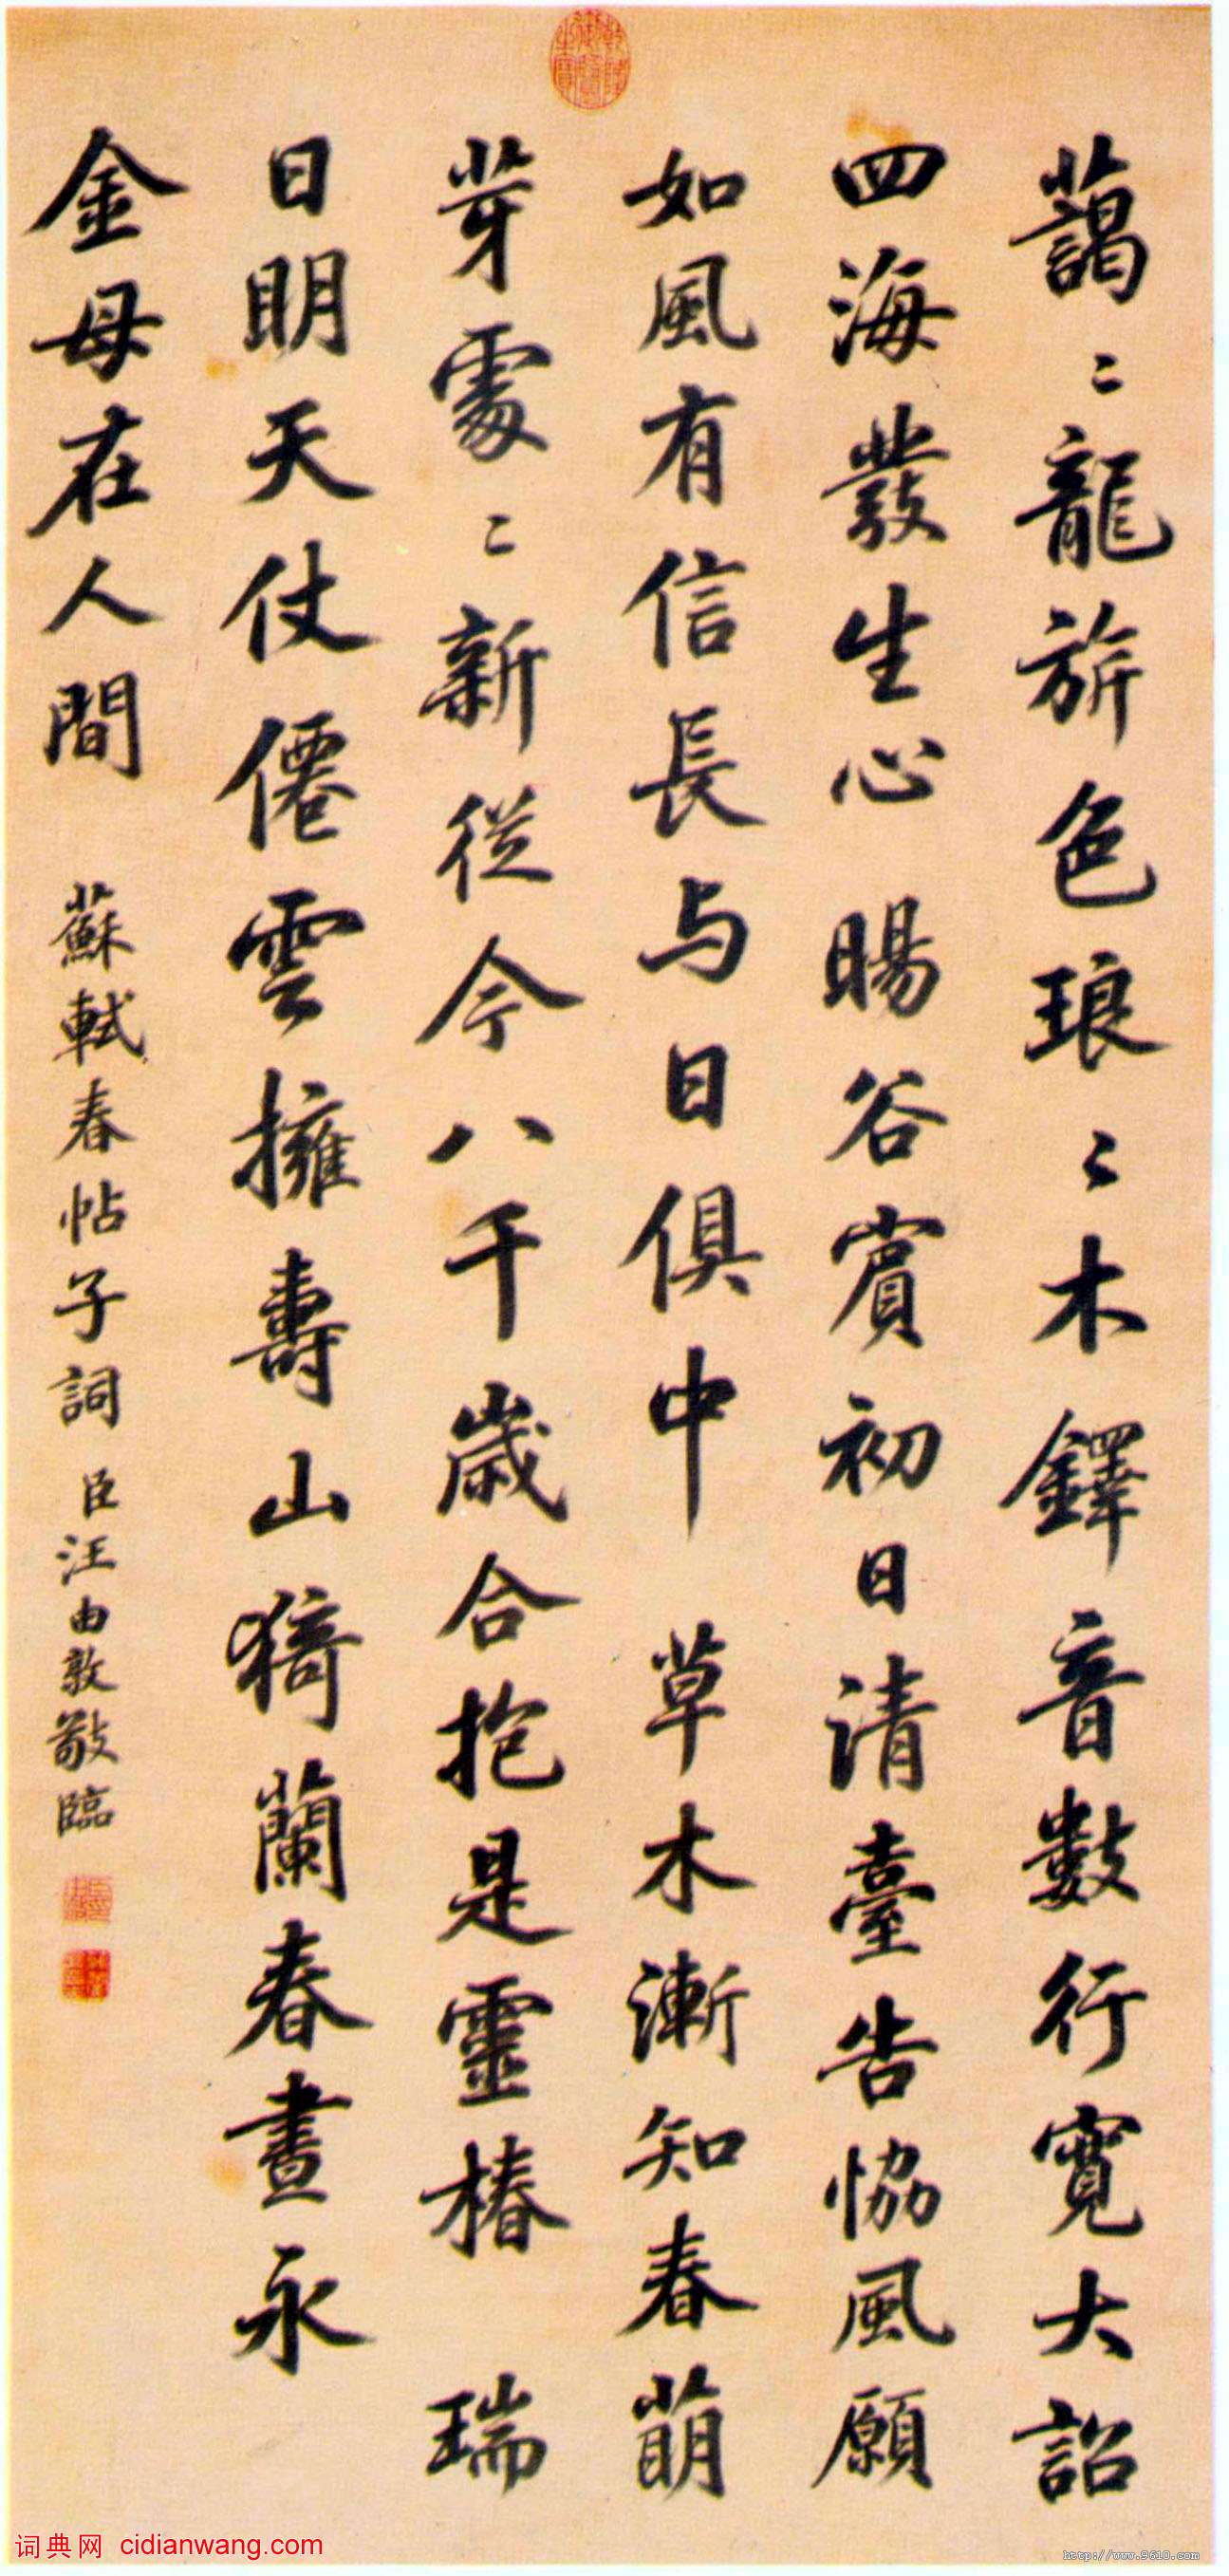 藹〻龍旂色琅〻木鐸音數行寬大詔
四海發生心 暘谷賓初日清臺告協風願
如風有信長与日俱中 草木漸知春萌
芽處〻新從今八千歲合抱是靈椿 瑞
日明天仗僊雲擁壽山猗蘭春晝永
金母在人間 蘇軾春帖子詞 臣汪由敦敬臨
乾隆御覽之寶
词典网 cidianwang.com
http://www.9610.com